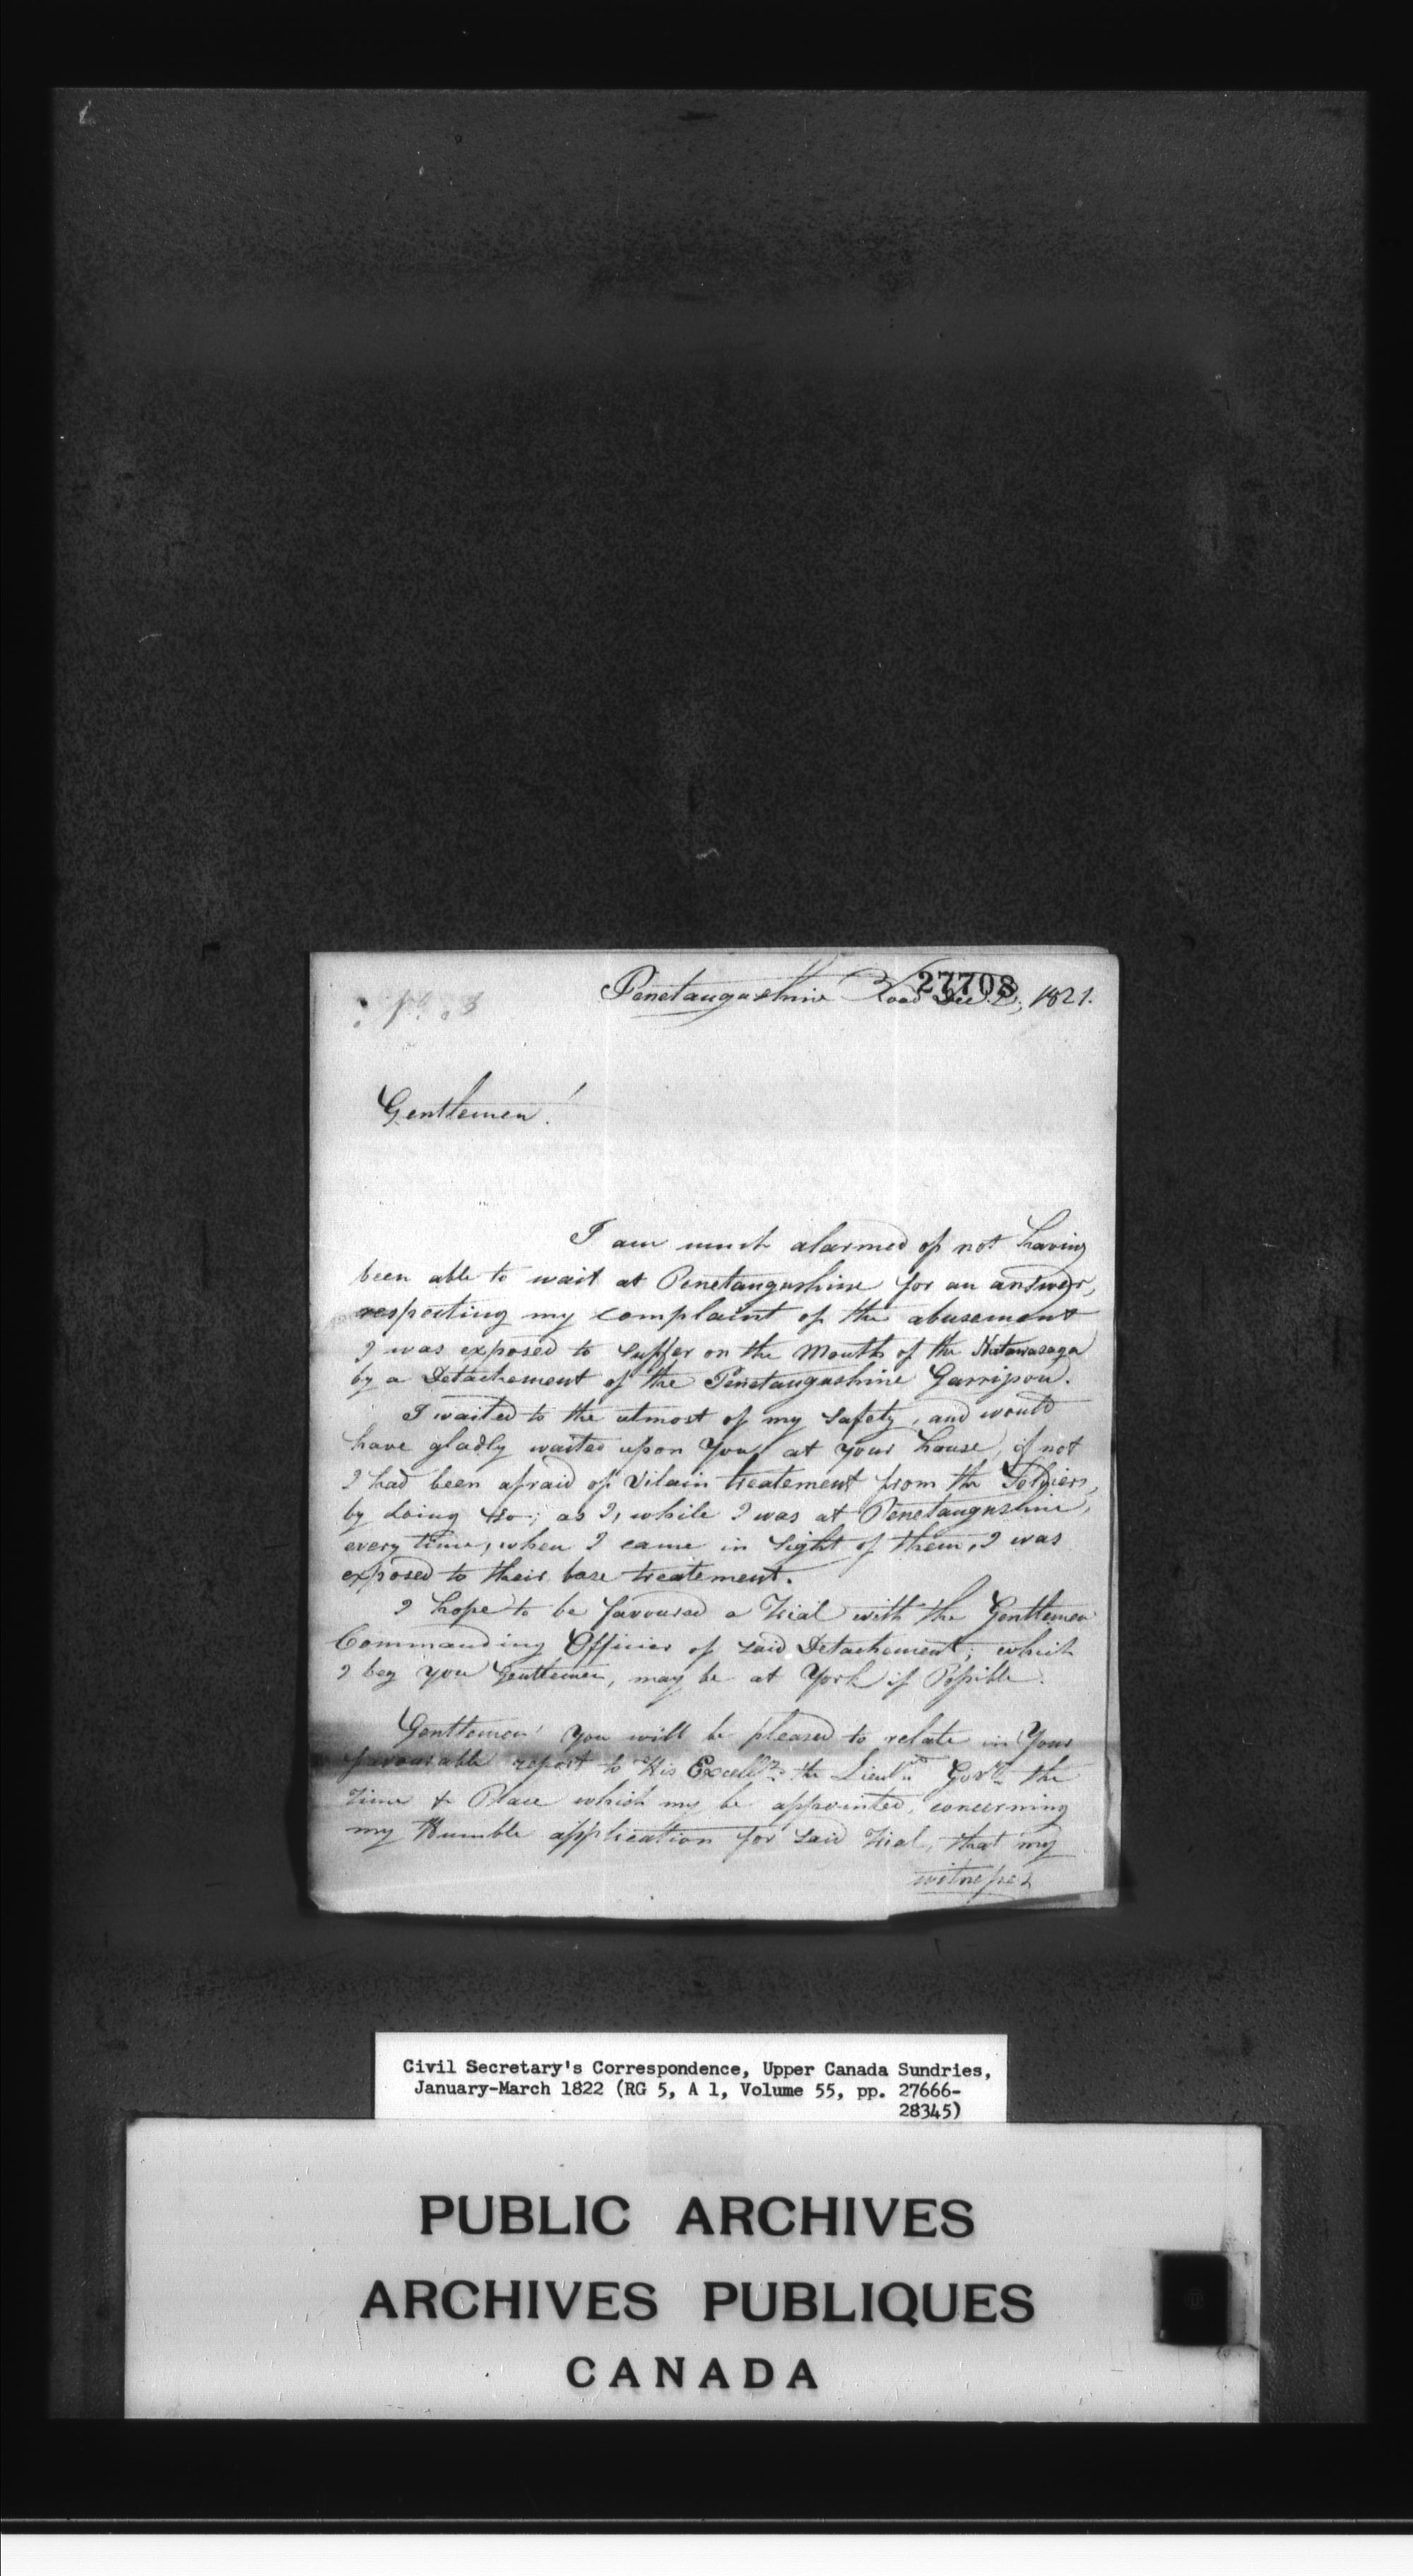 27708
Penetangushine Road Dec. 2, 1821.
Gentlemen!
I am much alarmed of not having
been able to wait at Penetangushine for an answer,
respecting my complaint of the abusement
I was exposed to suffer on the Mouth of the Natawasaga
by a Detachement of the Penetangushine Garrison.
I waited to the utmost of my safety, and would
have gladly waited upon You at your house, if not
I had been afraid of vilain treatement from the Soldiers,
by doing so; as I, while I was at Penetangushine,
every time, when I came in sight of them, I was
exposed to their base treatement.
I hope to be favoured a Trial with the Gentlemen
Commanding Officier of said Detachement; which
I beg you Gentlemen, may be at York if Possible.
Gentlemen! You will be pleased to relate in Your
favourable report to His Excelly. the Lieutn. Govr. the
Time & Place which my be appointed, concerning
my Humble application for said Trial, that my
witnesses
Civil Secretary's Correspondence, Upper Canada Sundries,
January-March 1822 (RG 5, A 1, Volume 55, pp. 27666-
28345)
PUBLIC ARCHIVES
ARCHIVES PUBLIQUES
CANADA